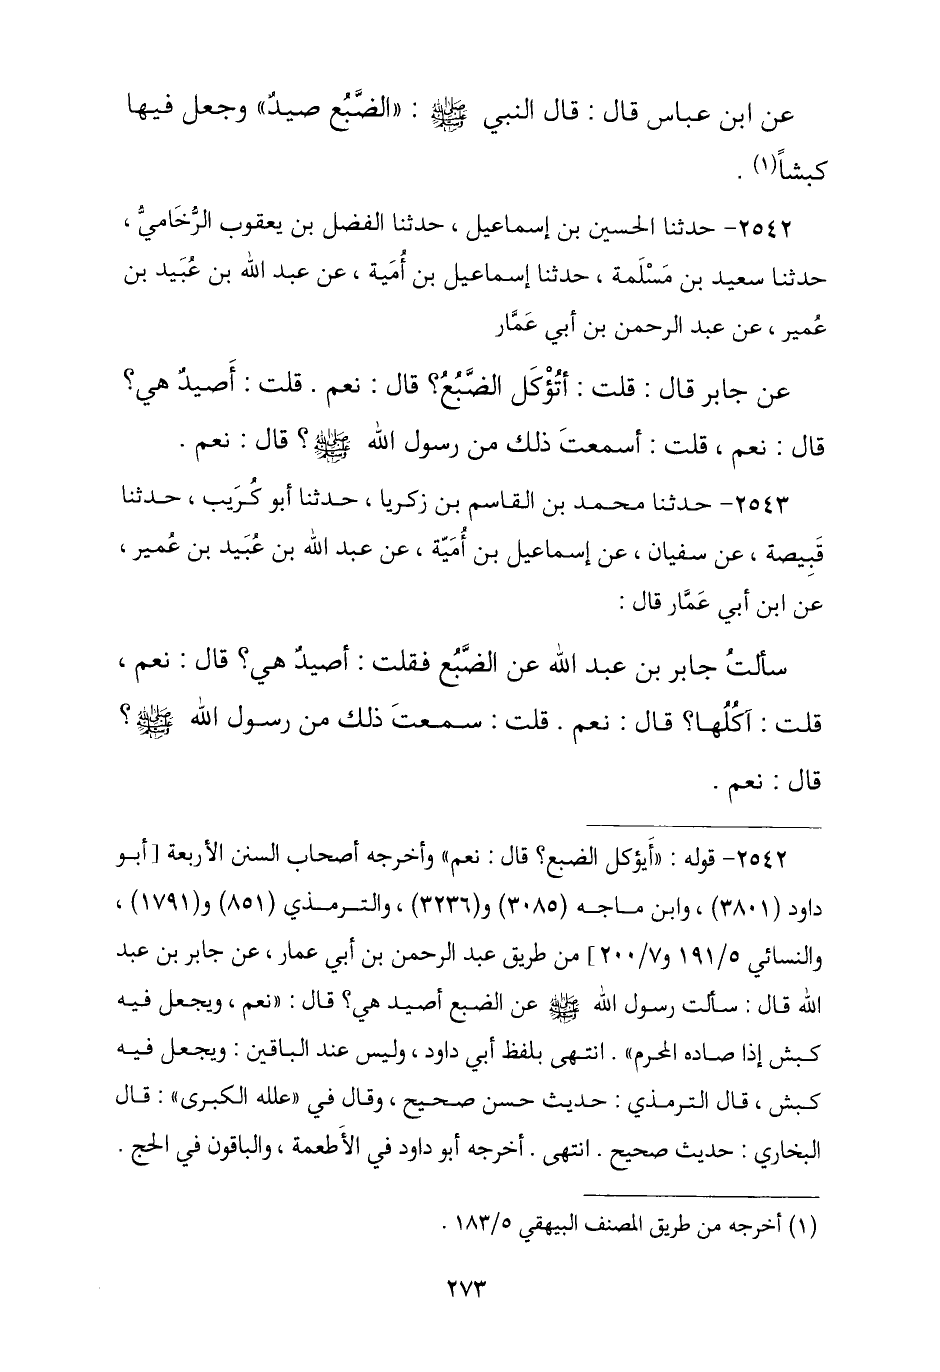 عن ابن عباس قال : قال النبي ﷺ : «الضَّبُع صيدٌ» وجعل فيها
كبشاً(١) .
٢٥٤٢- حدثنا الحسين بن إسماعيل ، حدثنا الفضل بن يعقوب الرُّخَاميُّ ،
حدثنا سعيد بن مَسْلَمة ، حدثنا إسماعيل بن أُمَية ، عن عبد الله بن عُبَيد بن
عُمير ، عن عبد الرحمن بن أبي عَمَّار
عن جابر قال : قلت : أتُؤْكَل الضَّبُعُ؟ قال : نعم . قلت : أَصيدٌ هي؟
قال : نعم ، قلت : أسمعتَ ذلك من رسول الله ﷺ ؟ قال : نعم .
٢٥٤٣- حدثنا محمد بن القاسم بن زكريا ، حدثنا أبو كُرَيب ، حدثنا
قَبِيصة ، عن سفيان ، عن إسماعيل بن أُمَيّة ، عن عبد الله بن عُبَيد بن عُمير ،
عن ابن أبي عَمَّار قال :
سألتُ جابر بن عبد الله عن الضَّبُع فقلت : أصيدٌ هي؟ قال : نعم ،
قلت : آكُلُها؟ قال : نعم . قلت : سمعتَ ذلك من رسول الله ﷺ ؟
قال : نعم .
٢٥٤٢- قوله : «أَيؤكل الضبع؟ قال : نعم» وأخرجه أصحاب السنن الأربعة [أبو
داود (٣٨٠١) ، وابن ماجه (٣٠٨٥) و(٣٢٣٦) ، والترمذي (٨٥١) و(١٧٩١) ،
والنسائي ١٩١/٥ و٢٠٠/٧] من طريق عبد الرحمن بن أبي عمار ، عن جابر بن عبد
الله قال : سألت رسول الله ﷺ عن الضبع أصيد هي؟ قال : «نعم ، ويجعل فيه
كبش إذا صاده المحرم» . انتهى بلفظ أبي داود ، وليس عند الباقين : ويجعل فيه
كبش ، قال الترمذي : حديث حسن صحيح ، وقال في «علله الكبرى» : قال
البخاري : حديث صحيح . انتهى . أخرجه أبو داود في الأطعمة ، والباقون في الحج .
(١) أخرجه من طريق المصنف البيهقي ١٨٣/٥ .
٢٧٣